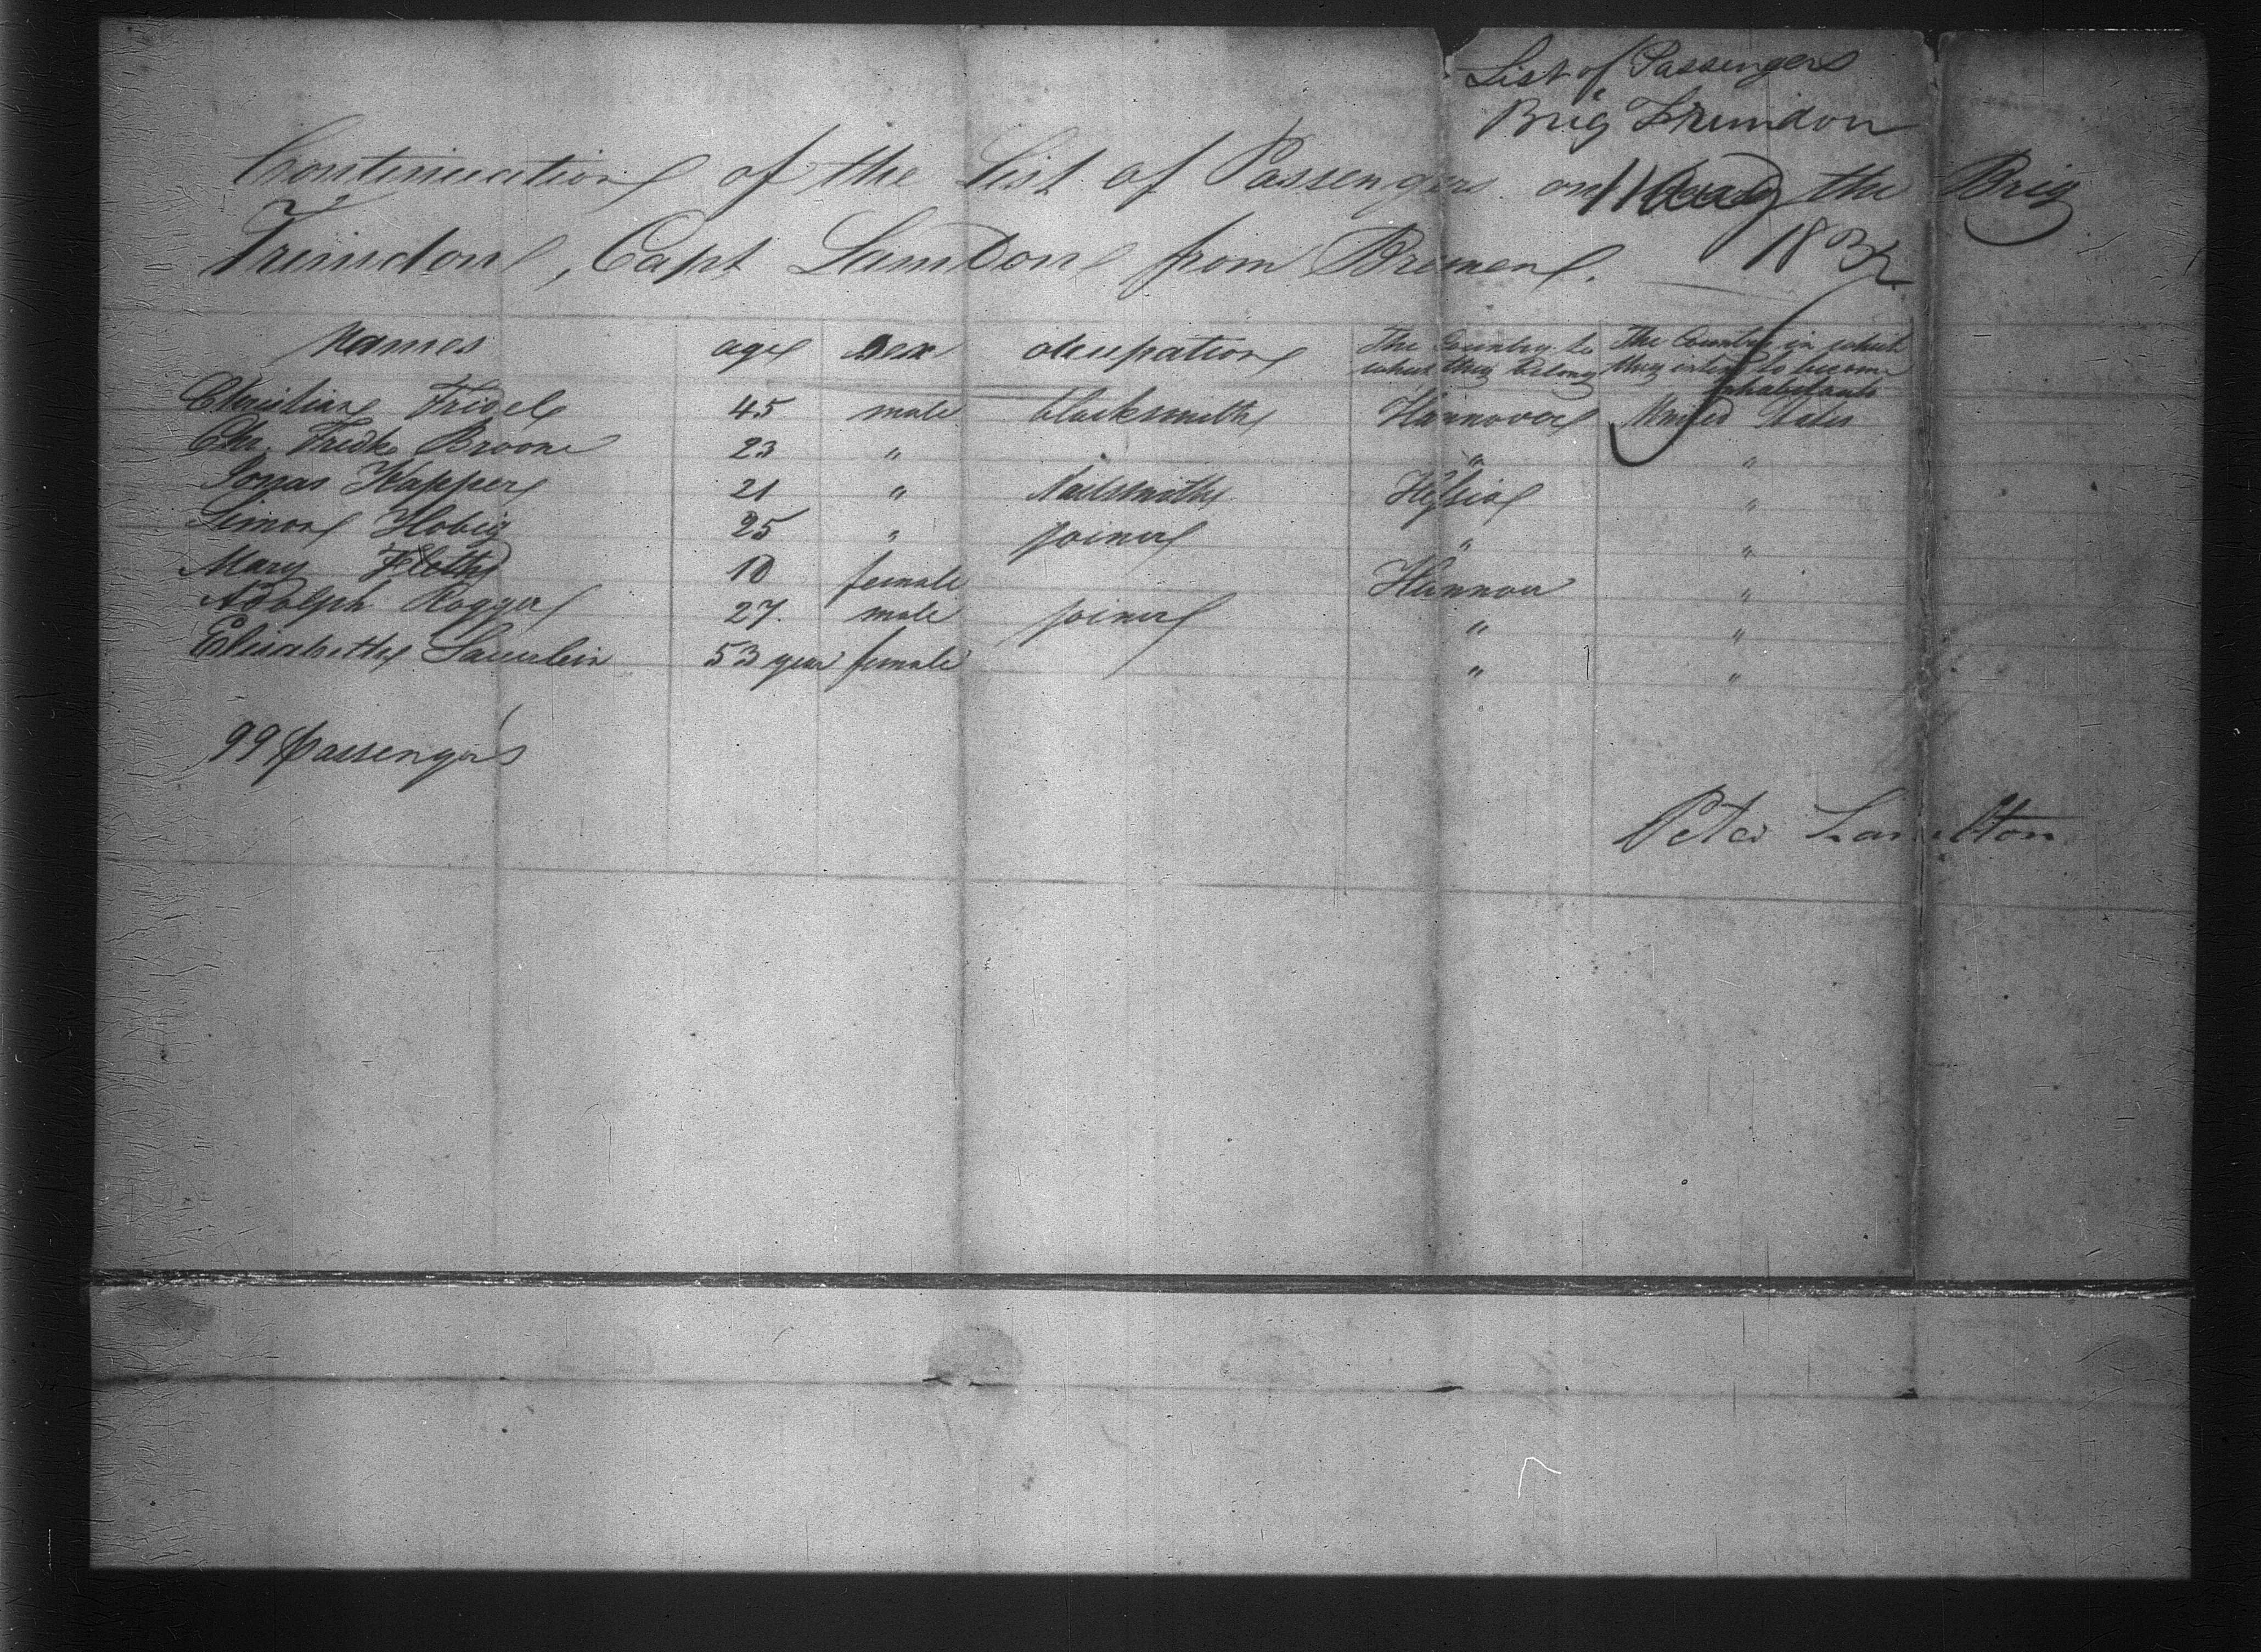 List of Passengers
Brig Trimdon
1832
Continuation of the List of Passengers on the Brig
Trimdon, Capt from Bremen.
Names age Sex ocupation The Country to which they belong The Country in which they intend to become inhabitants
Christian Fridel 45 male blacksmith Hannover United States
Chr. Fredk Broone 23 " " "
Jonas Kapper 21 " Nailsmith Hessia "
Simon Hobig 25 " joiner " "
Mary 10 female Hannover "
Adolph Rogger 27. male joiner " "
Elisabeth 53 year female " "
99 passengers
Peter